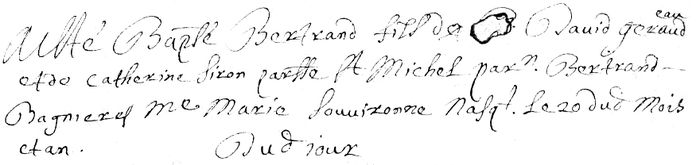 A esté Baptsé Bertrand fills de David geraud eau
et de Catherine Siron parsse St Michel parn. Bertrand
Bagnieres me Marie Souvironne Nasqt. Le 20 dud Mois
et an. Dud jour